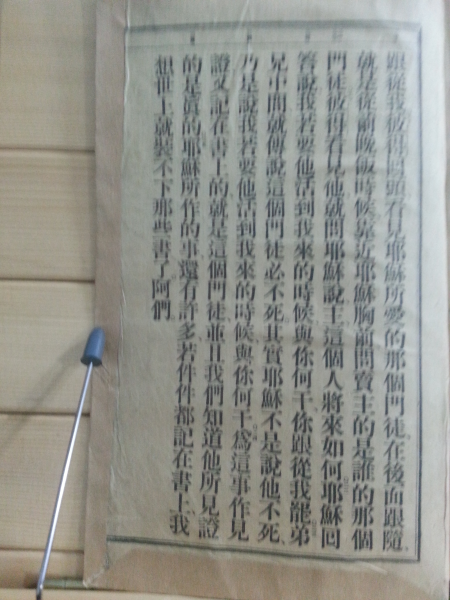 跟從我彼得回頭看見耶穌所愛的那個門徒、在後面跟隨、
就是從前晚飯時候靠近耶穌胸前問賣主的是誰的那個
門徒彼得看見他就問耶穌說主、這個人將來如何耶穌回
答說我若要他活到我來的時候、與你何干、你跟從我罷弟
兄中間就傳說這個門徒必不死其實耶穌不是說他不死、
乃是說我若要他活到我來的時候、與你何干、爲這事作見
證又記在書上的就是這個門徒、並且我們知道他所見證
的是眞的耶穌所作的事、還有許多若件件都記在書上、我
想世上就裝不下那些書了阿們